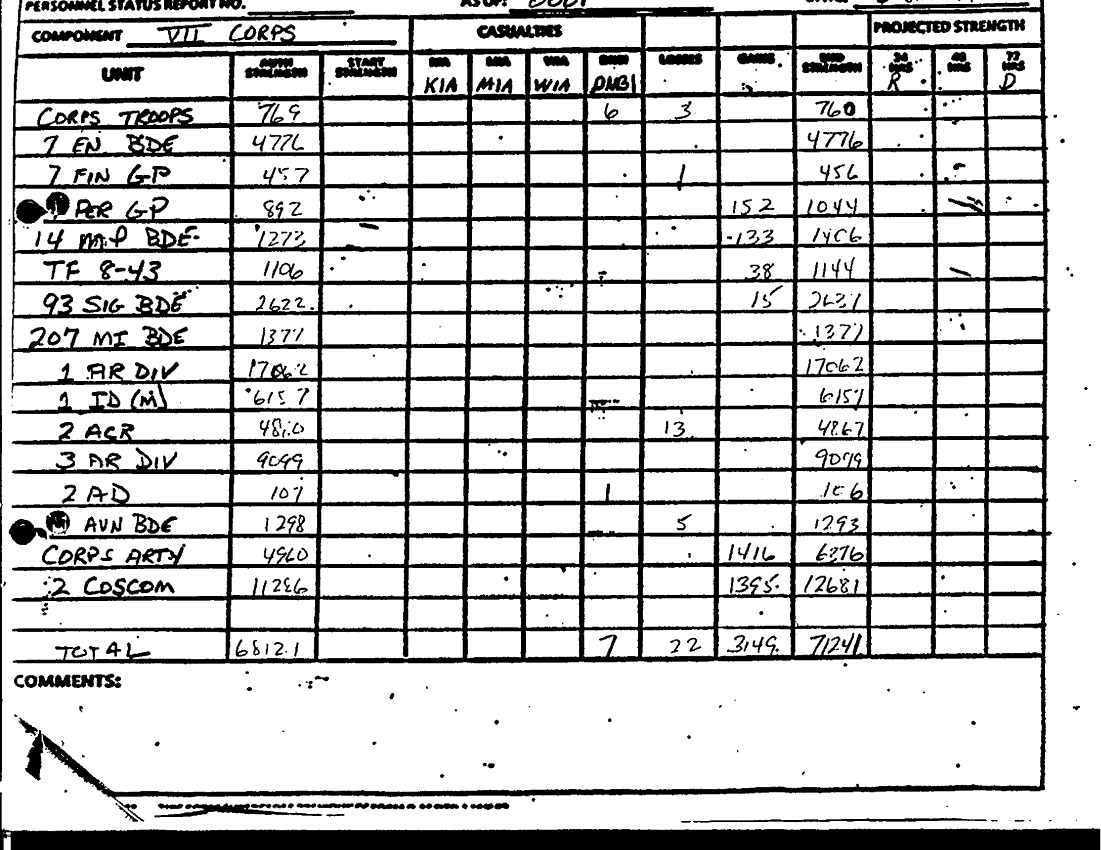 PERSONNEL STATUS REPORT NO.
AS OF: 0001
COMPONENT VII CORPS CASUALTIES PROJECTED STRENGTH
UNIT AUTH STRENGTH START STRENGTH KIA MIA WIA DNBI LOSSES GAINS END STRENGTH 24 HRS R 48 HRS 72 HRS D
CORPS TROOPS 769 6 3 760
7 EN BDE 4776 4776
7 FIN GP 457 1 456
PER GP 892 152 1044
14 MP BDE 1273 133 1406
TF 8-43 1106 38 1144
93 SIG BDE 2622 15 2637
207 MI BDE 1377 1377
1 AR DIV 17062 17062
1 ID (M) 6157 6157
2 ACR 13 4867
3 AR DIV 9099
2 AD 107 1 106
AVN BDE 1298 5 1293
CORPS ARTY 4960 1416 6376
2 COSCOM 11286 1395 12681
TOTAL 68121 7 22 3149 71241
COMMENTS: